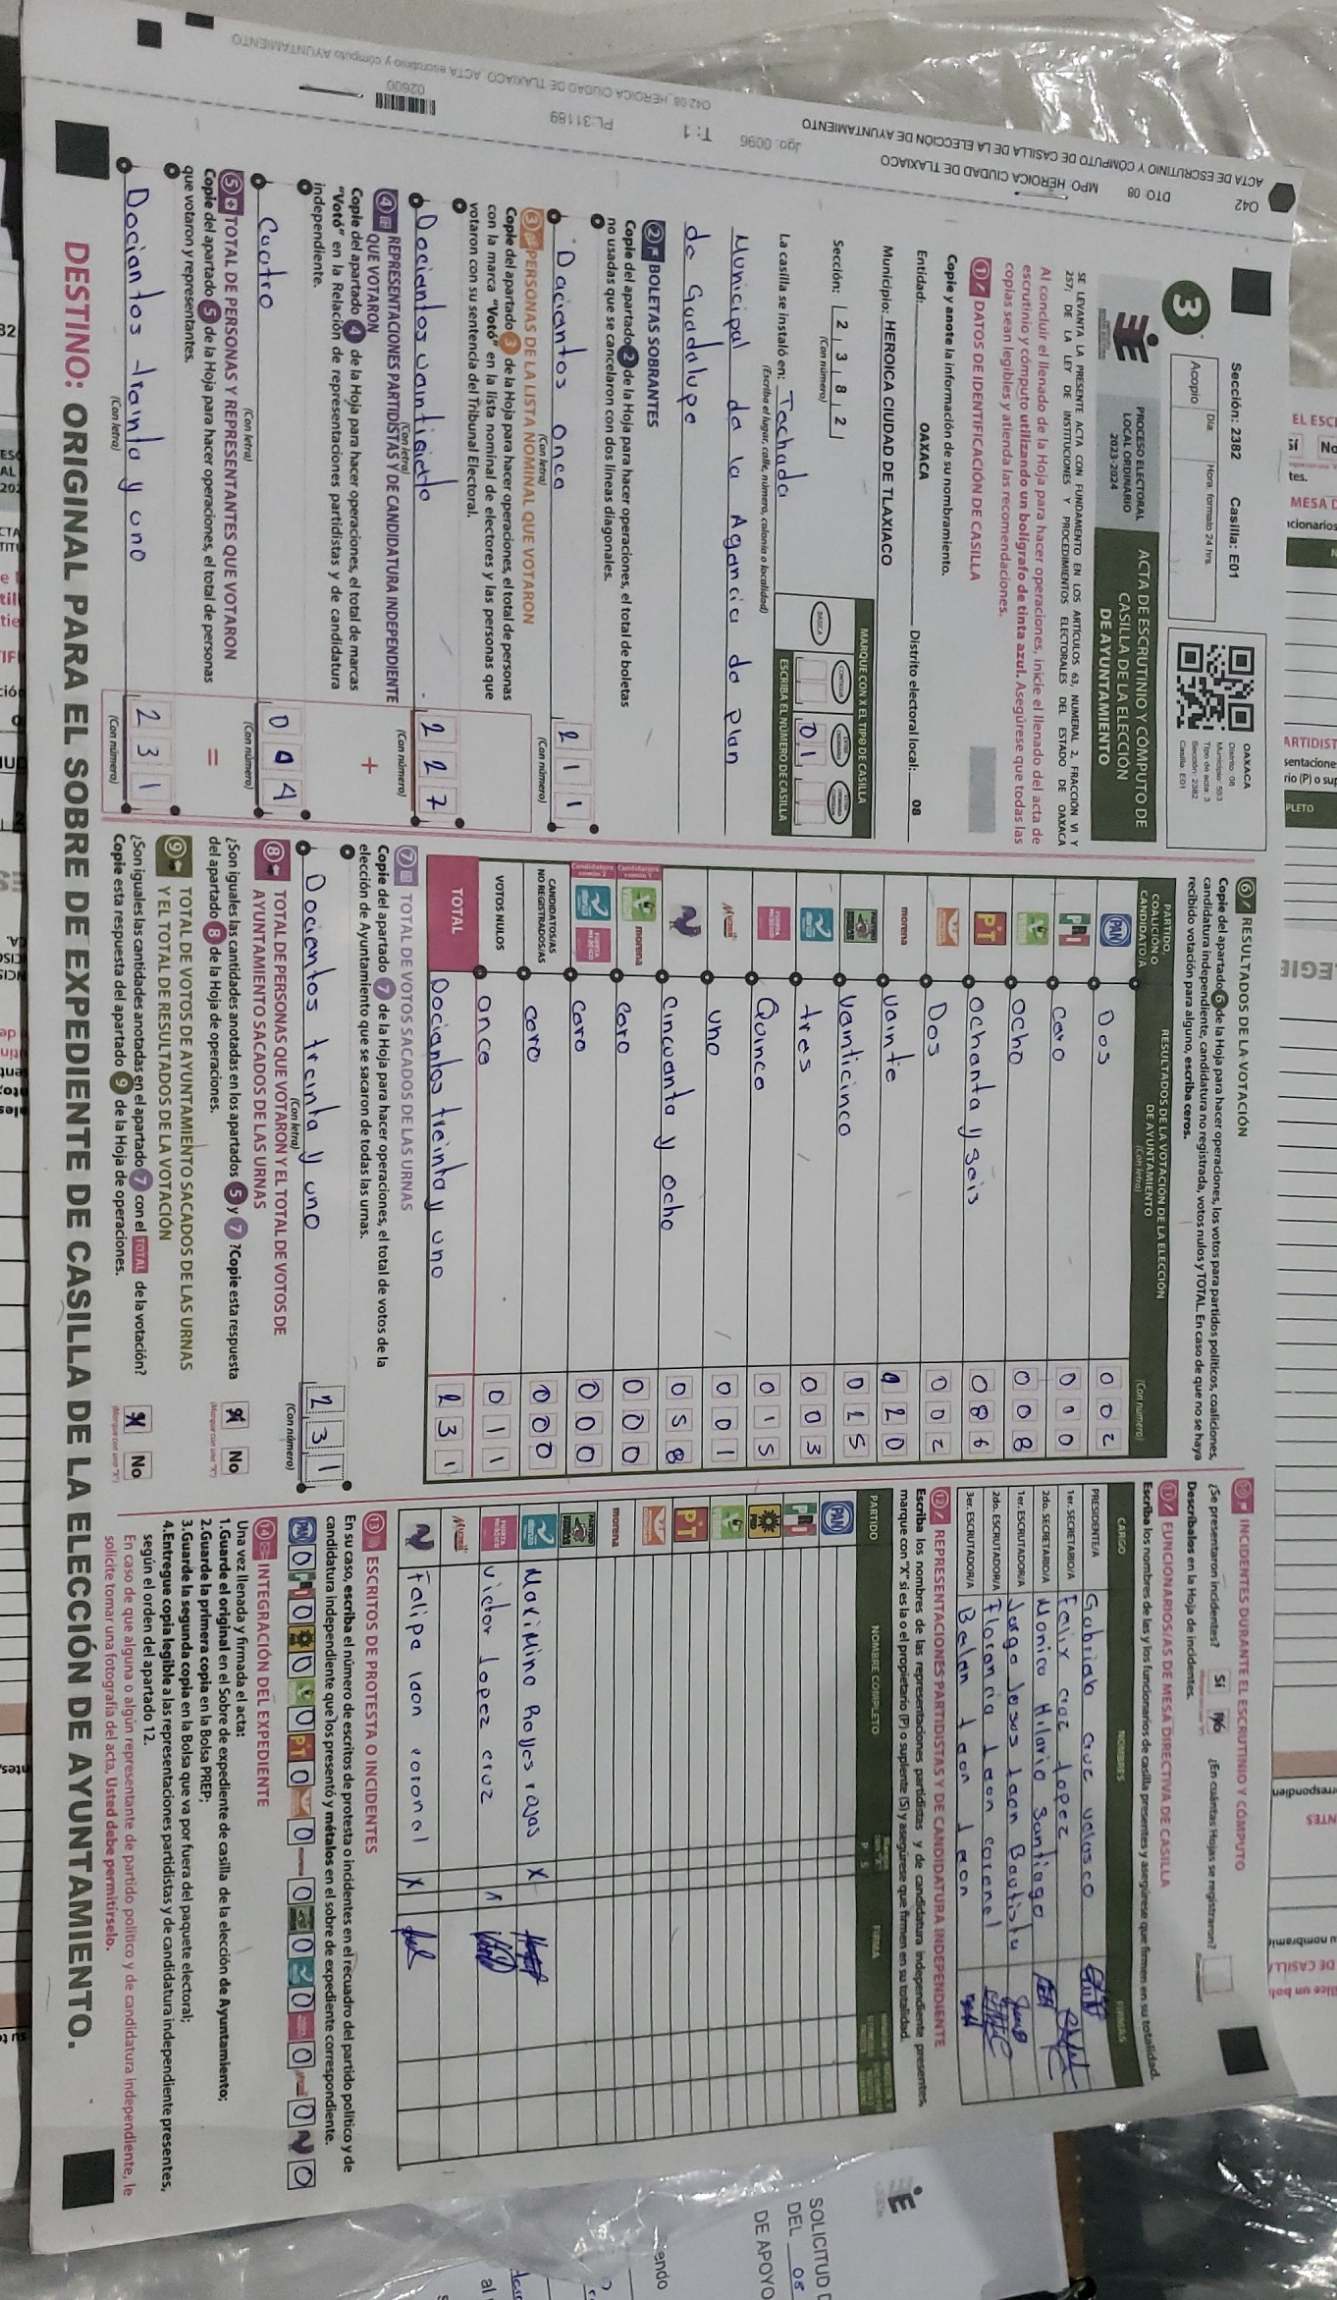 Sección: 2382 Casilla: E01
3
Acopio
Día
Hora formato 24 hrs.
OAXACA
Distrito: 08
Municipio: 553
Tipo de acta: 3
Sección: 2382
Casilla: E01
PROCESO ELECTORAL
LOCAL ORDINARIO
2023-2024
ACTA DE ESCRUTINIO Y CÓMPUTO DE
CASILLA DE LA ELECCIÓN
DE AYUNTAMIENTO
SE LEVANTA LA PRESENTE ACTA CON FUNDAMENTO EN LOS ARTÍCULOS 63, NUMERAL 2, FRACCIÓN VI Y
257, DE LA LEY DE INSTITUCIONES Y PROCEDIMIENTOS ELECTORALES DEL ESTADO DE OAXACA
Al concluir el llenado de la Hoja para hacer operaciones, inicie el llenado del acta de
escrutinio y cómputo utilizando un bolígrafo de tinta azul. Asegúrese que todas las
copias sean legibles y atienda las recomendaciones.
1 DATOS DE IDENTIFICACIÓN DE CASILLA
Copie y anote la información de su nombramiento.
Entidad: OAXACA Distrito electoral local: 08
Municipio: HEROICA CIUDAD DE TLAXIACO
Sección: 2 3 8 2
(Con número)
MARQUE CON X EL TIPO DE CASILLA
BÁSICA
0 1
ESCRIBA EL NÚMERO DE CASILLA
La casilla se instaló en: Techado
(Escriba el lugar, calle, número, colonia o localidad)
Municipal de la Agencia de Plan
de Guadalupe
2 BOLETAS SOBRANTES
Copie del apartado 2 de la Hoja para hacer operaciones, el total de boletas
no usadas que se cancelaron con dos líneas diagonales.
Docientos once 2 1 1
(Con letra) (Con número)
3 PERSONAS DE LA LISTA NOMINAL QUE VOTARON
Copie del apartado 3 de la Hoja para hacer operaciones, el total de personas
con la marca "Votó" en la lista nominal de electores y las personas que
votaron con su sentencia del Tribunal Electoral.
Docientos veintisiete 2 2 7
(Con letra) (Con número)
4 REPRESENTACIONES PARTIDISTAS Y DE CANDIDATURA INDEPENDIENTE
QUE VOTARON
+
Copie del apartado 4 de la Hoja para hacer operaciones, el total de marcas
"Votó" en la Relación de representaciones partidistas y de candidatura
independiente.
Cuatro 0 0 4
(Con letra) (Con número)
5 TOTAL DE PERSONAS Y REPRESENTANTES QUE VOTARON
=
Copie del apartado 5 de la Hoja para hacer operaciones, el total de personas
que votaron y representantes.
Docientos treinta y uno 2 3 1
(Con letra) (Con número)
6 RESULTADOS DE LA VOTACIÓN
Copie del apartado 6 de la Hoja para hacer operaciones, los votos para partidos políticos, coaliciones,
candidatura independiente, candidatura no registrada, votos nulos y TOTAL. En caso de que no se haya
recibido votación para alguno, escriba ceros.
PARTIDO, COALICIÓN O CANDIDATO/A
RESULTADOS DE LA VOTACIÓN DE LA ELECCIÓN
DE AYUNTAMIENTO
(Con letra) (Con número)
PAN Dos 0 0 2
PRI cero 0 0 0
ocho 0 0 8
PT ochenta y seis 0 8 6
Dos 0 0 2
morena veinte 0 2 0
veinticinco 0 2 5
tres 0 0 3
Quince 0 1 5
uno 0 0 1
cincuenta y ocho 0 5 8
morena cero 0 0 0
cero 0 0 0
CANDIDATOS/AS
NO REGISTRADOS/AS cero 0 0 0
VOTOS NULOS once 0 1 1
TOTAL Docientos treinta y uno 2 3 1
7 TOTAL DE VOTOS SACADOS DE LAS URNAS
Copie del apartado 7 de la Hoja para hacer operaciones, el total de votos de la
elección de Ayuntamiento que se sacaron de todas las urnas.
Docientos treinta y uno 2 3 1
(Con letra) (Con número)
8 TOTAL DE PERSONAS QUE VOTARON Y EL TOTAL DE VOTOS DE
AYUNTAMIENTO SACADOS DE LAS URNAS
¿Son iguales las cantidades anotadas en los apartados 5 y 7 ?Copie esta respuesta
del apartado 8 de la Hoja de operaciones.
Sí No
9 TOTAL DE VOTOS DE AYUNTAMIENTO SACADOS DE LAS URNAS
Y EL TOTAL DE RESULTADOS DE LA VOTACIÓN
¿Son iguales las cantidades anotadas en el apartado 7 con el TOTAL de la votación?
Copie esta respuesta del apartado 9 de la Hoja de operaciones.
Sí No
10 INCIDENTES DURANTE EL ESCRUTINIO Y CÓMPUTO
¿Se presentaron incidentes? Sí No ¿En cuántas Hojas se registraron?
Descríbalos en la Hoja de incidentes.
11 FUNCIONARIOS/AS DE MESA DIRECTIVA DE CASILLA
Escriba los nombres de las y los funcionarios de casilla presentes y asegúrese que firmen en su totalidad.
CARGO NOMBRES FIRMAS
PRESIDENTE/A Gabriela cruz velasco
1er. SECRETARIO/A Felix cruz Lopez
2do. SECRETARIO/A Monica Hilario Santiago
1er. ESCRUTADOR/A Jorge Jesus Leon Bautista
2do. ESCRUTADOR/A Florencia Leon coronel
3er. ESCRUTADOR/A Belen Leon Leon
12 REPRESENTACIONES PARTIDISTAS Y DE CANDIDATURA INDEPENDIENTE
Escriba los nombres de las representaciones partidistas y de candidatura independiente presentes,
marque con "X" si es la o el propietario (P) o suplente (S) y asegúrese que firmen en su totalidad.
PARTIDO NOMBRE COMPLETO P S FIRMA
PAN
PRI
PRD
PT
morena
Maximino Reyes rojas X
Victor Lopez cruz
Felipe leon coronel X
13 ESCRITOS DE PROTESTA O INCIDENTES
En su caso, escriba el número de escritos de protesta o incidentes en el recuadro del partido político y de
candidatura independiente que los presentó y métalos en el sobre de expediente correspondiente.
PAN 0 PRI 0 0 0 PT 0 0 0 0 0 0 0 0
14 INTEGRACIÓN DEL EXPEDIENTE
Una vez llenada y firmada el acta:
1.Guarde el original en el Sobre de expediente de casilla de la elección de Ayuntamiento;
2.Guarde la primera copia en la Bolsa PREP;
3.Guarde la segunda copia en la Bolsa que va por fuera del paquete electoral;
4.Entregue copia legible a las representaciones partidistas y de candidatura independiente presentes,
según el orden del apartado 12.
En caso de que alguna o algún representante de partido político y de candidatura independiente, le
solicite tomar una fotografía del acta, Usted debe permitírselo.
DESTINO: ORIGINAL PARA EL SOBRE DE EXPEDIENTE DE CASILLA DE LA ELECCIÓN DE AYUNTAMIENTO.
042 DTO 08 MPO HEROICA CIUDAD DE TLAXIACO
ACTA DE ESCRUTINIO Y CÓMPUTO DE CASILLA DE LA ELECCIÓN DE AYUNTAMIENTO
Jgo: 0096 T: 1 PL:31189 02600
042 08_HEROICA CIUDAD DE TLAXIACO ACTA escrutinio y cómputo AYUNTAMIENTO
SOLICITUD
DEL 05
DE APOYO